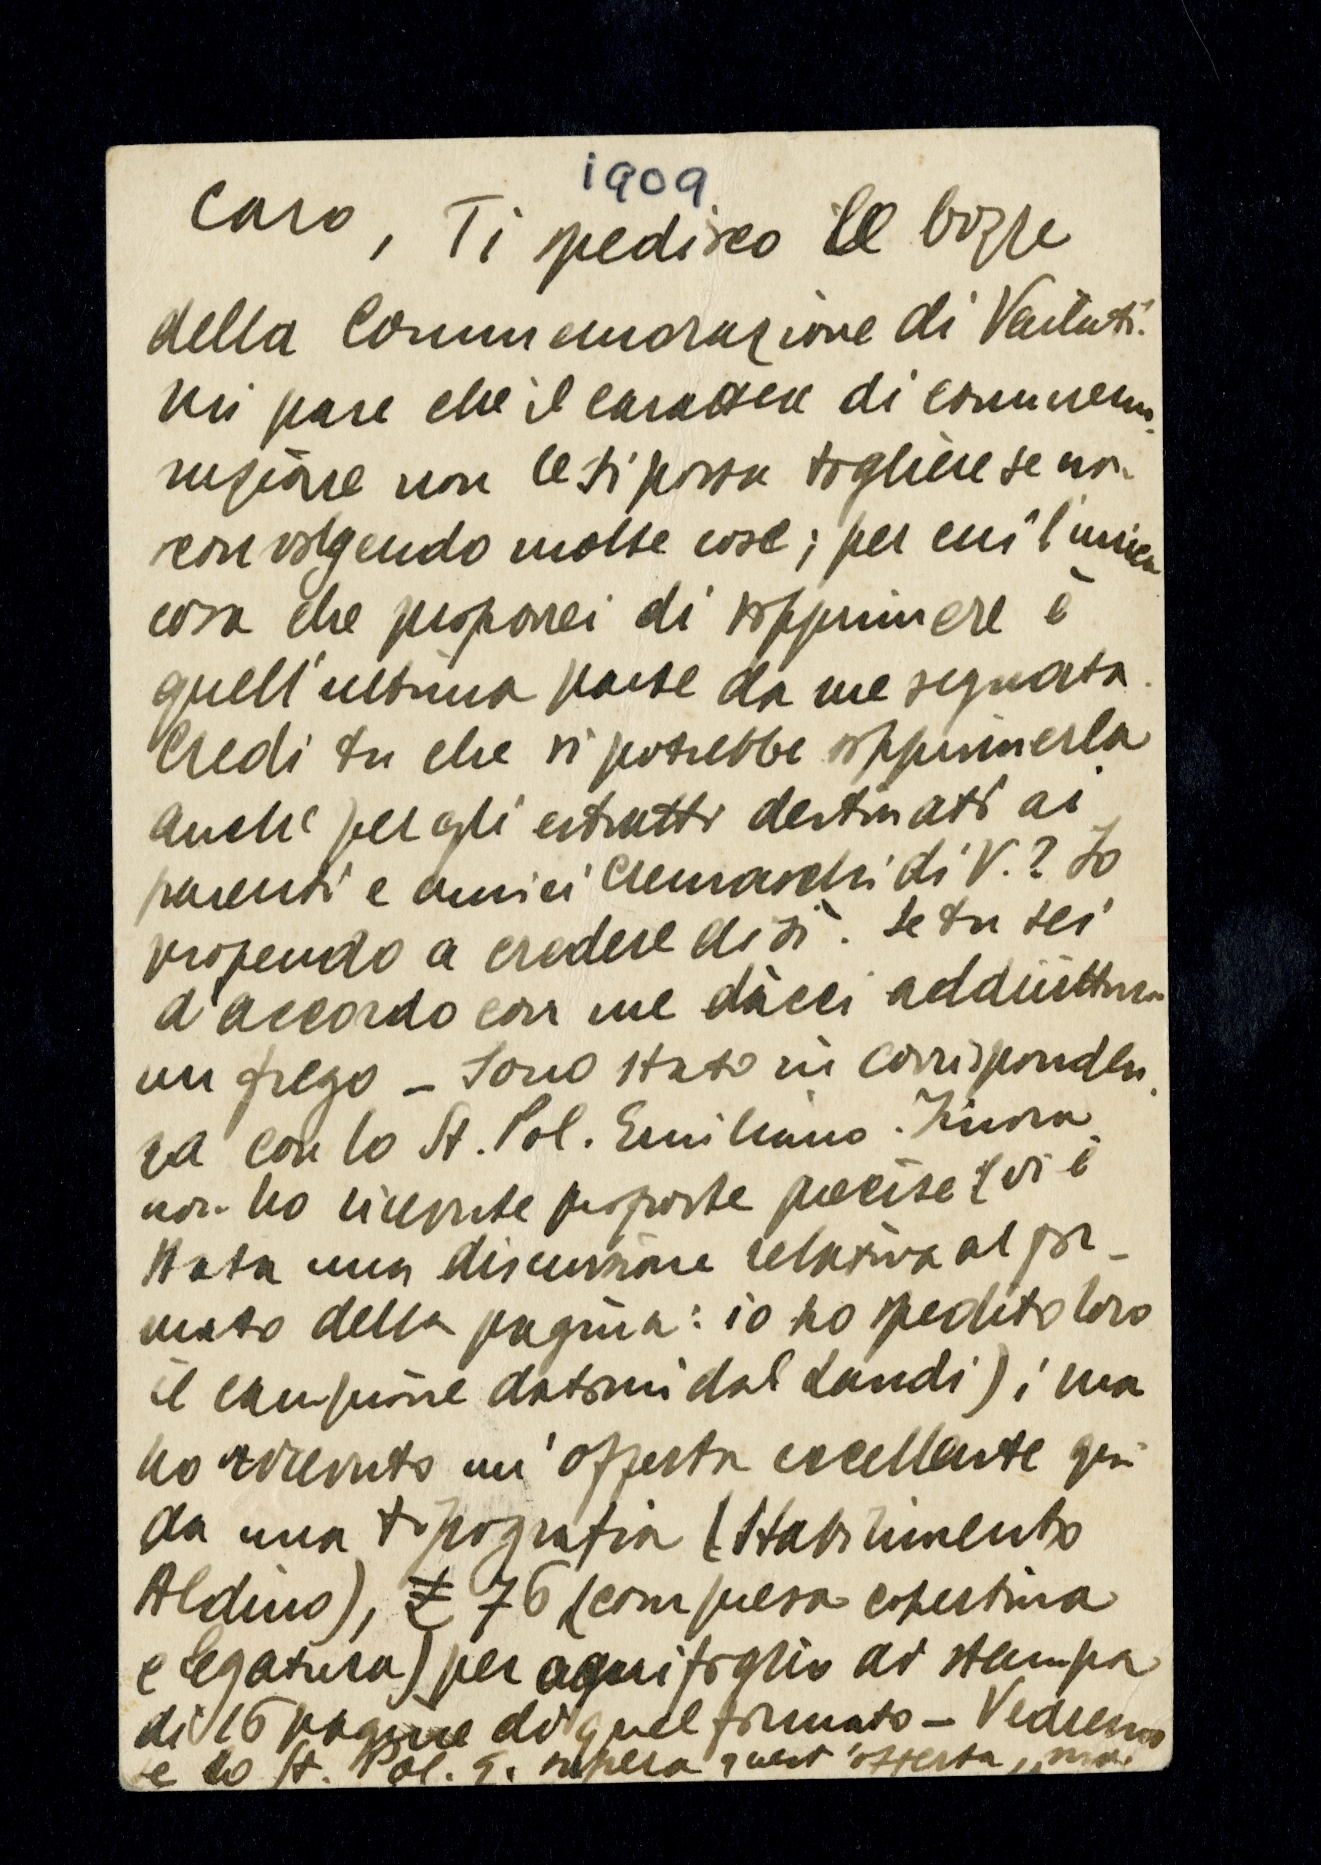 1909
Caro, Ti spedisco le bozze
della Commemorazione di Vailati.
Mi pare che il carattere di commemo-
razione non le si possa togliere se non
convolgendo molte cose; per cui l'unica
cosa che proporrei di sopprimere è
quell'ultima parte da me segnata.
Credi tu che si potrebbe sopprimerla
anche per gli estratti destinati ai
parenti e amici Cremaschi di V.? Io
propendo a credere di sì. Se tu sei
d'accordo con me dàcci addirittura
un frego – Sono stato in corrisponden-
za con lo St. Pol. Emiliano. Finora
non ho ricevute proposte precise (vi è
stata una discussione relativa al for-
mato della pagina: io ho spedito loro
il campione datomi dal Landi); ma
ho ricevuto un'offerta eccellente qui
da una tipografia (Stabilimento
Aldino), £ 76 (compresa copertina
e legatura) per ogni foglio di stampa
di 16 pagine di quel formato – Vedremo
se lo St. Pol. E. supera quest'offerta, ma